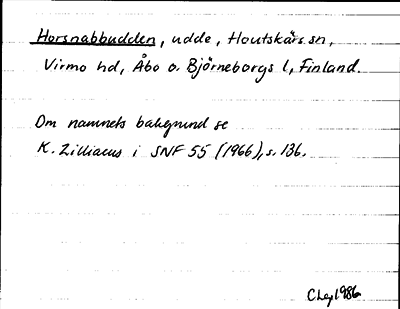 Horsnabbudden, udde, Houtskärs sn,
Virmo hd, Åbo o. Björneborgs l, Finland.
Om namnets bakgrund se
K. Zilliacus i SNF 55 (1966), s. 136.
1986